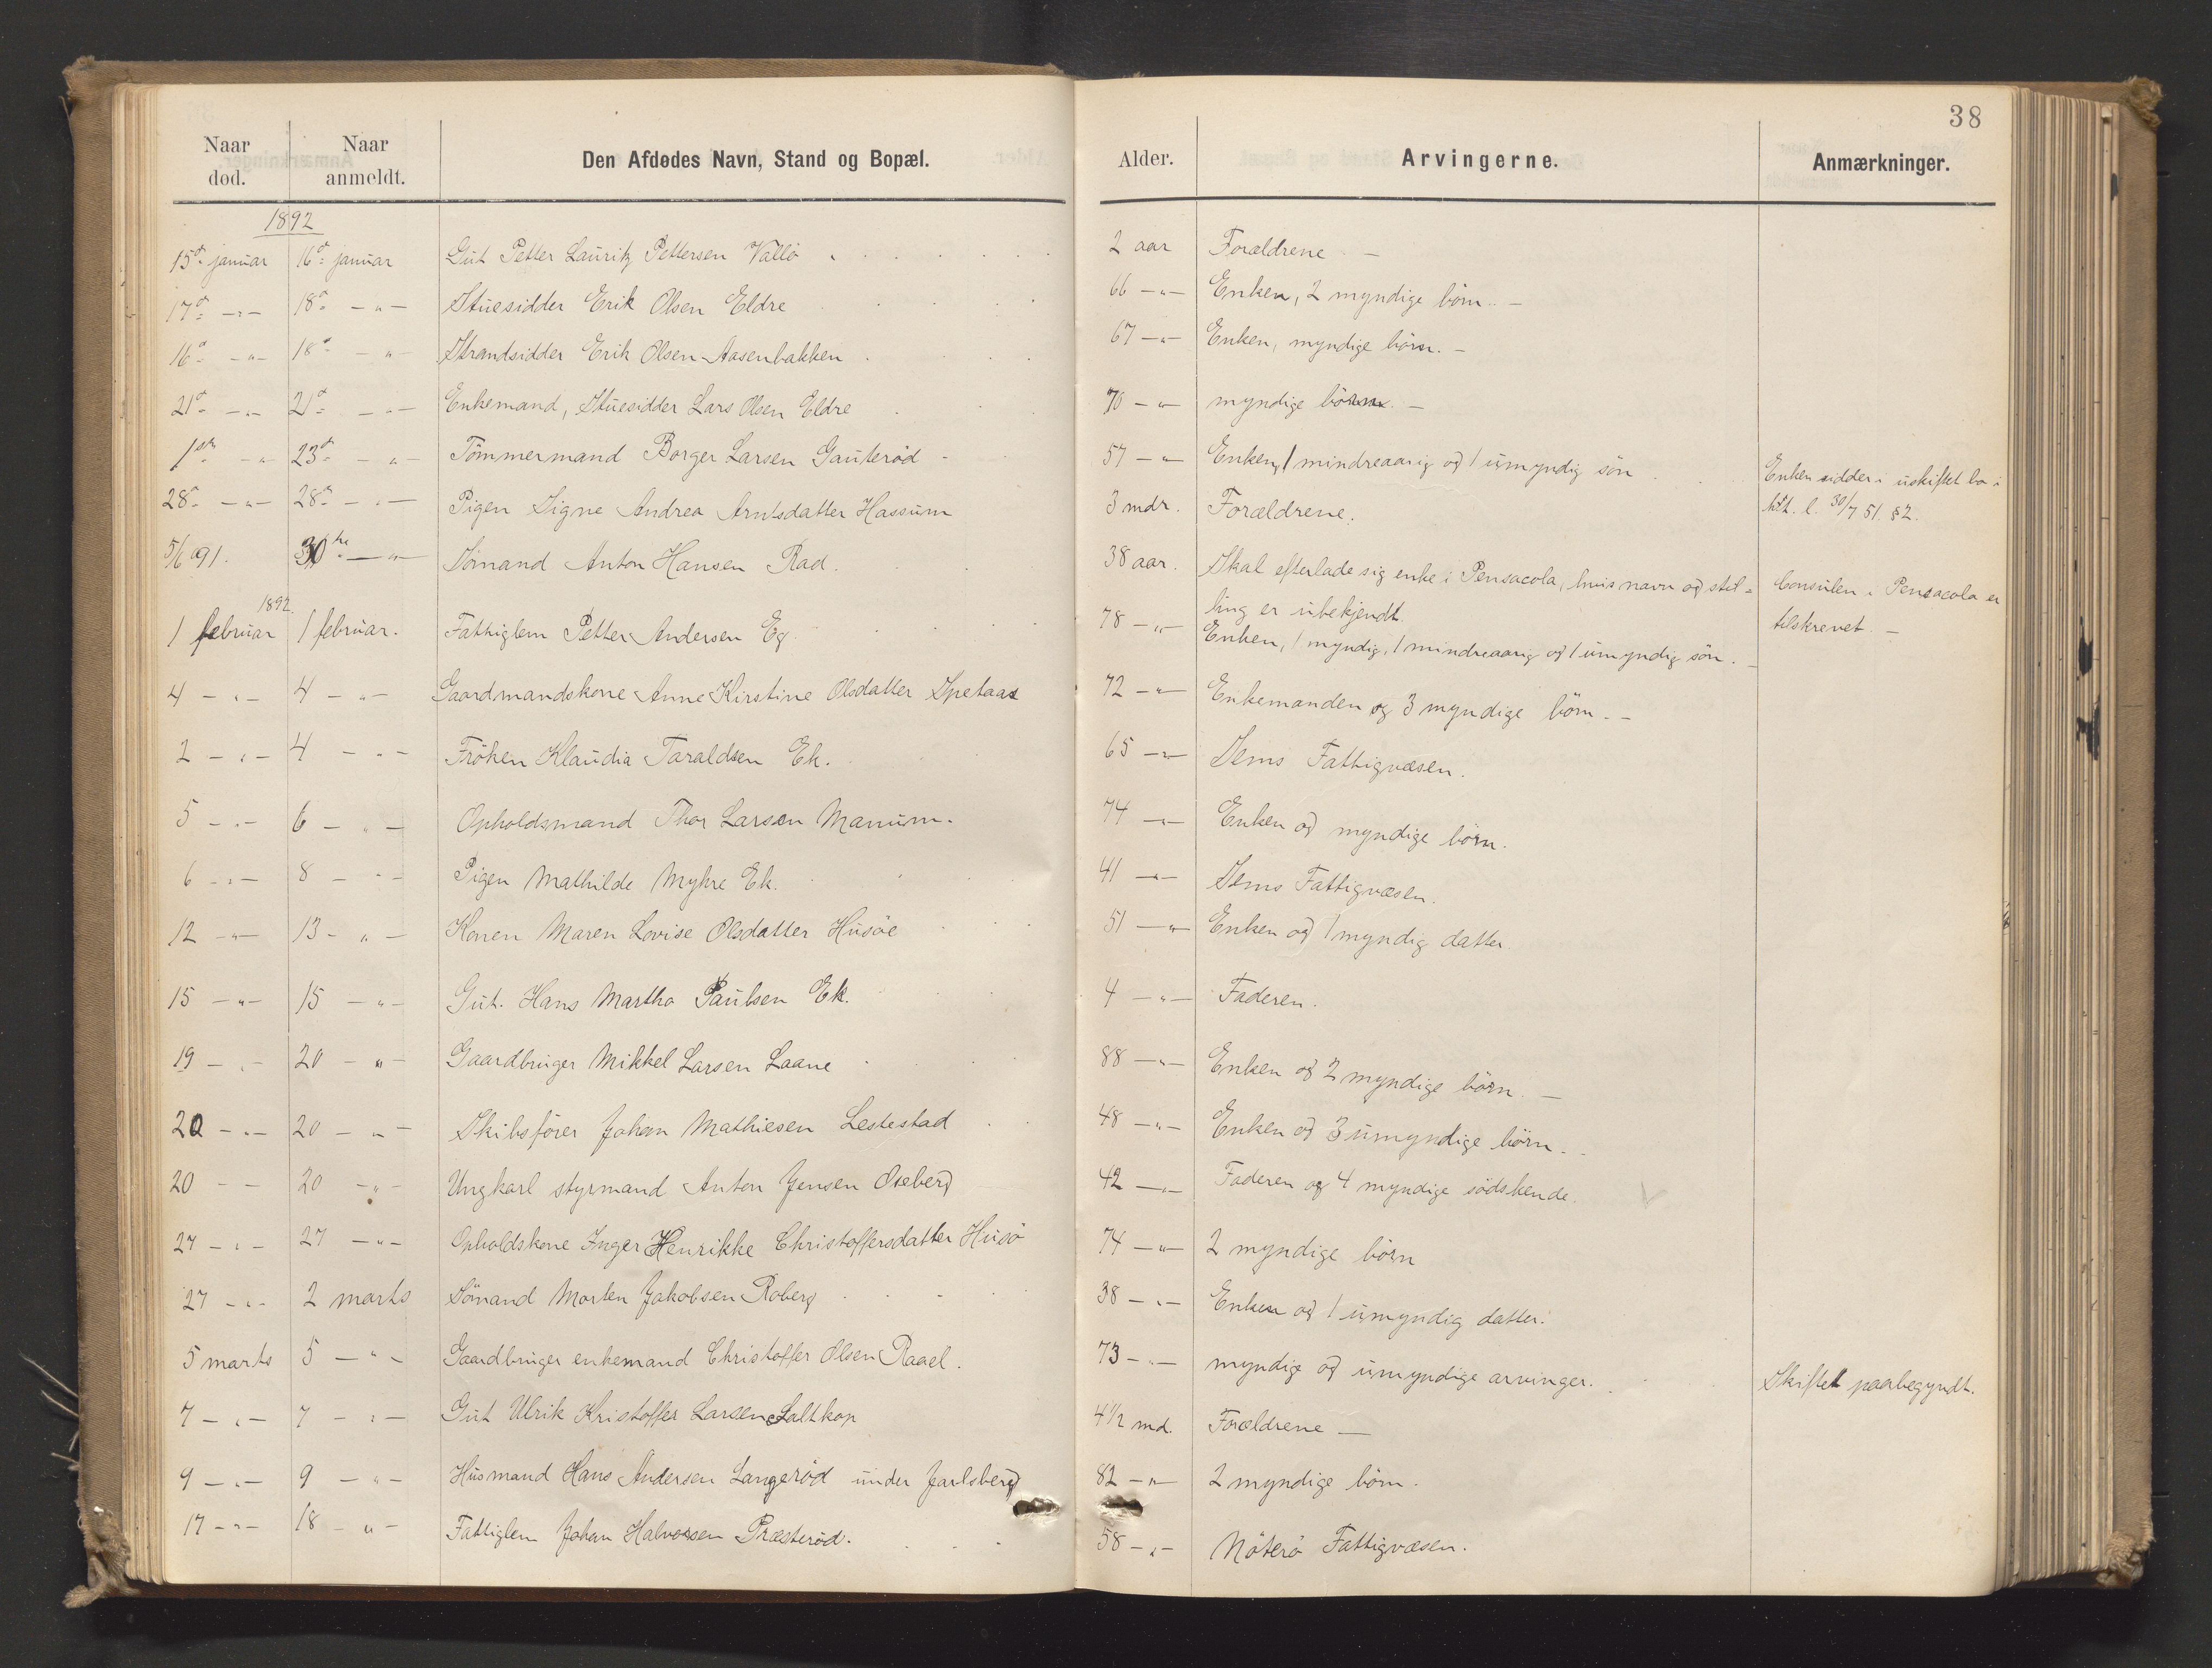 38
Naar død. Naar anmeldt. Den Afdødes Navn, Stand og Bopæl. Alder. Arvingerne. Anmærkninger.
1892
15de januar 16de januar Gut Petter Lauritz Pettersen Vallö 2 aar Forældrene –
17de – " – 18de – " – Stuesidder Erik Olsen Eldre 66 – " – Enken, 2 myndige börn. –
16de – " – 18de – " – Strandsidder Erik Olsen Aasenbakken 67 – " – Enken, myndige börn. –
21de – " – 21de – " – Enkemand, Stuesidder Lars Olsen Eldre 70 – " – myndige börn. –
1ste – " – 23de – " – Tömmermand Borger Larsen Gauteröd 57 – " – Enken, 1 mindreaarig og 1 umyndig sön Enken sidder i uskiftet bo i
28de – " – 28de – " – Pigen Signe Andrea Arntsdatter Hassum 3 mdr. Forældrene. hht. l. 30/7 51. § 2.
5/6 91. 30te – " – Sömand Anton Hansen Rad. 38 aar. Skal efterlade sig enke i Pensacola, hvis navn og stil- Consulen i Pensacola er
ling er ubekjendt. tilskrevet. –
1892.
1 februar 1 februar. Fattiglem Petter Andersen Eg 78 – " – Enken, 1 myndig, 1 mindreaarig og 1 umyndig sön. –
4 – " – 4 – " – Gaardmandskone Anne Kirstine Olsdatter Spetaas 72 – " – Enkemanden og 3 myndige börn. –
2 – " – 4 – " – Fröken Klaudia Taraldsen Ek. 65 – " – Sems Fattigvæsen.
5 – " – 6 – " – Opholdsmand Thor Larsen Manum. 74 – " – Enken og myndige börn.
6 – " – 8 – " – Pigen Mathilde Myhre Ek. 41 – " – Sems Fattigvæsen.
12 – " – 13 – " – Konen Maren Lovise Olsdatter Husöe 51 – " – Enken og 1 myndig datter.
15 – " – 15 – " – Gut. Hans Martho Paulsen Ek. 4 – " – Faderen.
19 – " – 20 – " – Gaardbruger Mikkel Larsen Laane 88 – " – Enken og 2 myndige börn. –
20 – " – 20 – " – Skibsförer Johan Mathiesen Lestestad 48 – " – Enken og 3 umyndige börn. –
20 – – 20 – " – Ungkarl styrmand Anton Jensen Oseberg 42 – " – Faderen og 4 myndige södskende.
27 – " – 27 – " – Opholdskone Inger Henrikke Christoffersdatter Husö 74 – " – 2 myndige börn
27 – " – 2 marts Sömand Morten Jakobsen Roberg 38 – " – Enken og 1 umyndig datter.
5 marts 5 – " – Gaardbruger enkemand Christoffer Olsen Raael. 73 – " – myndige og umyndige arvinger. Skiftet paabegyndt.
7 – " – 7 – " – Gut Ulrik Kristoffer Larsen Saltkop 4 1/2 md. Forældrene –
9 – " – 9 – " – Husmand Hans Andersen Langeröd under Jarlsberg 82 – " – 2 myndige börn.
17 – " – 18 – " – Fattiglem Johan Halvorsen Præsteröd. 58 – " – Nöterö Fattigvæsen.